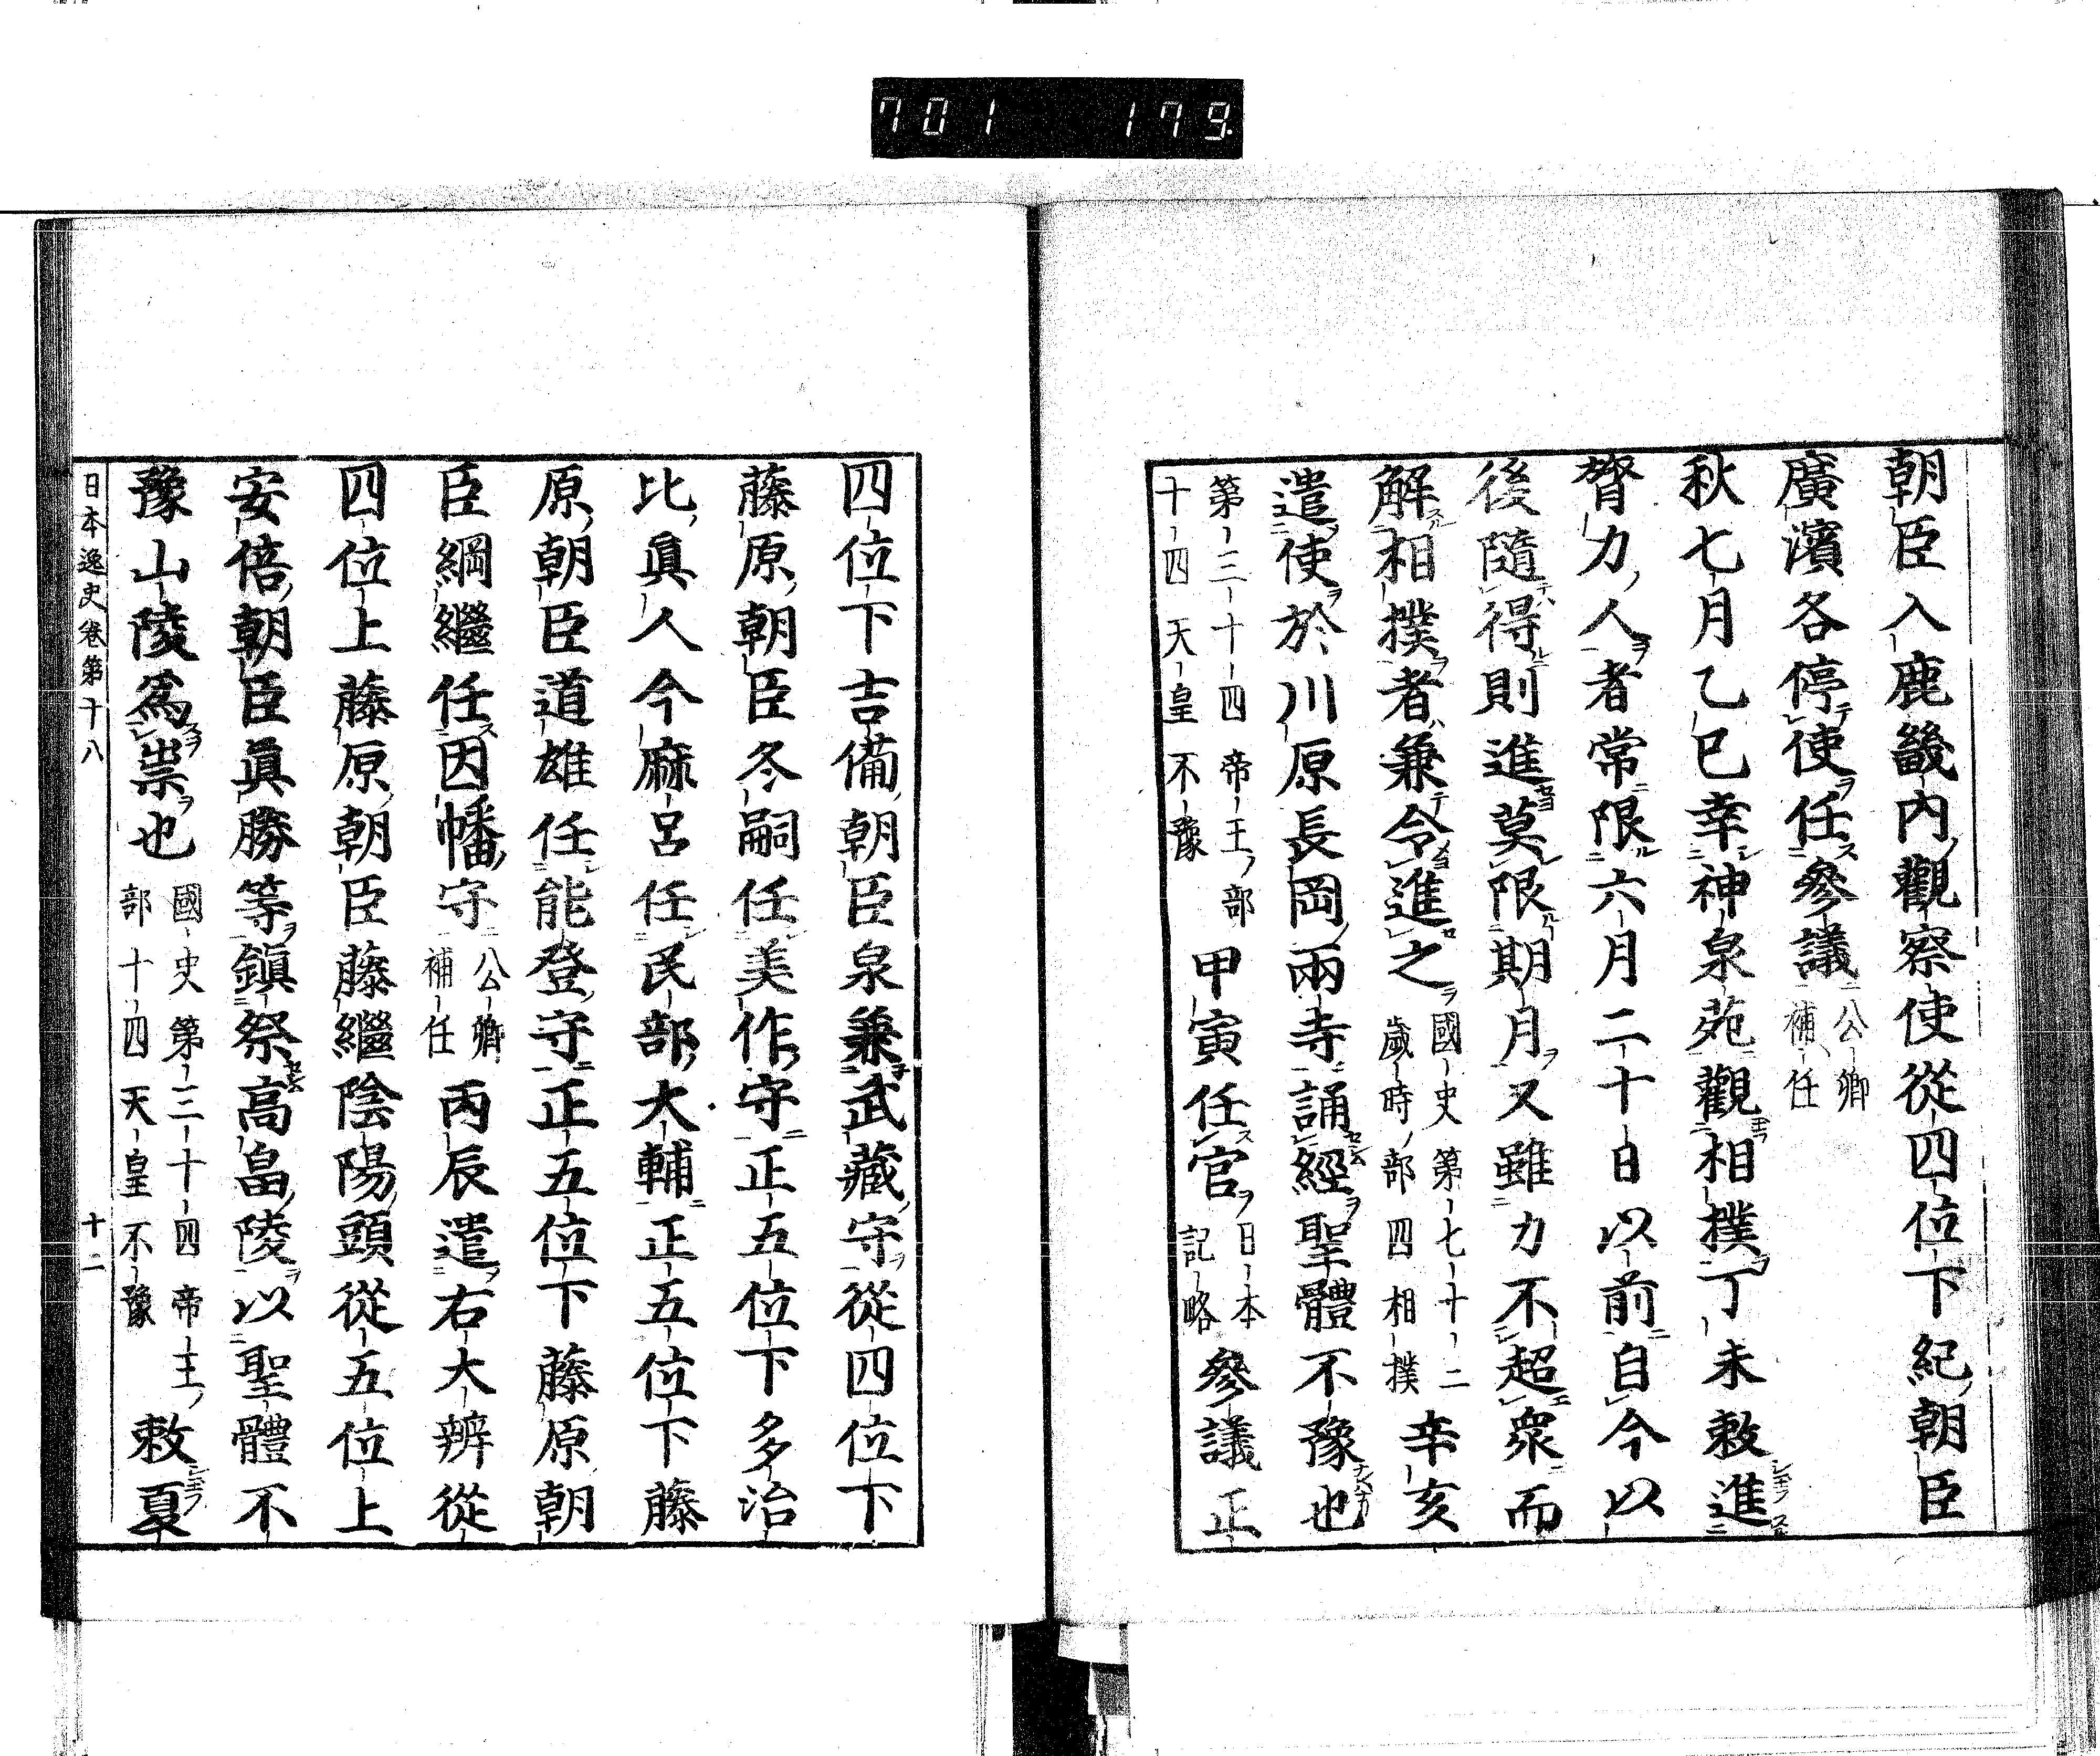 701 179
朝臣入鹿畿内觀察使從四位下紀朝臣
廣濱各停使任參議公卿補任
秋七月乙巳幸神泉苑觀相撲丁未敕進
膂力人者常限六月二十日以前自今以
後隨得則進莫限期月又雖力不超衆而
解相撲者兼令進之國史第七十二歲時部四相撲辛亥
遣使於川原長岡兩寺誦經聖體不豫也
第三十四帝王部十四天皇不豫甲寅任官日本記略參議正
四位下吉備朝臣泉兼武藏守從四位下
藤原朝臣冬嗣任美作守正五位下多治
比眞人今麻呂任民部大輔正五位下藤
原朝臣道雄任能登守正五位下藤原朝
臣綱繼任因幡守公卿補任丙辰遣右大辨從
四位上藤原朝臣藤繼陰陽頭從五位上
安倍朝臣眞勝等鎭祭高畠陵以聖體不
豫山陵爲祟也國史第三十四帝王部十四天皇不豫敕夏
日本逸史卷第十八 十二